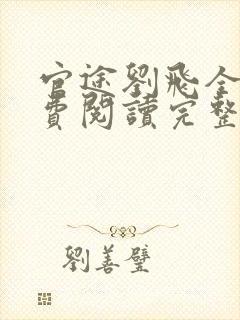 官途劉飛全
費閱讀完整
劉善璧